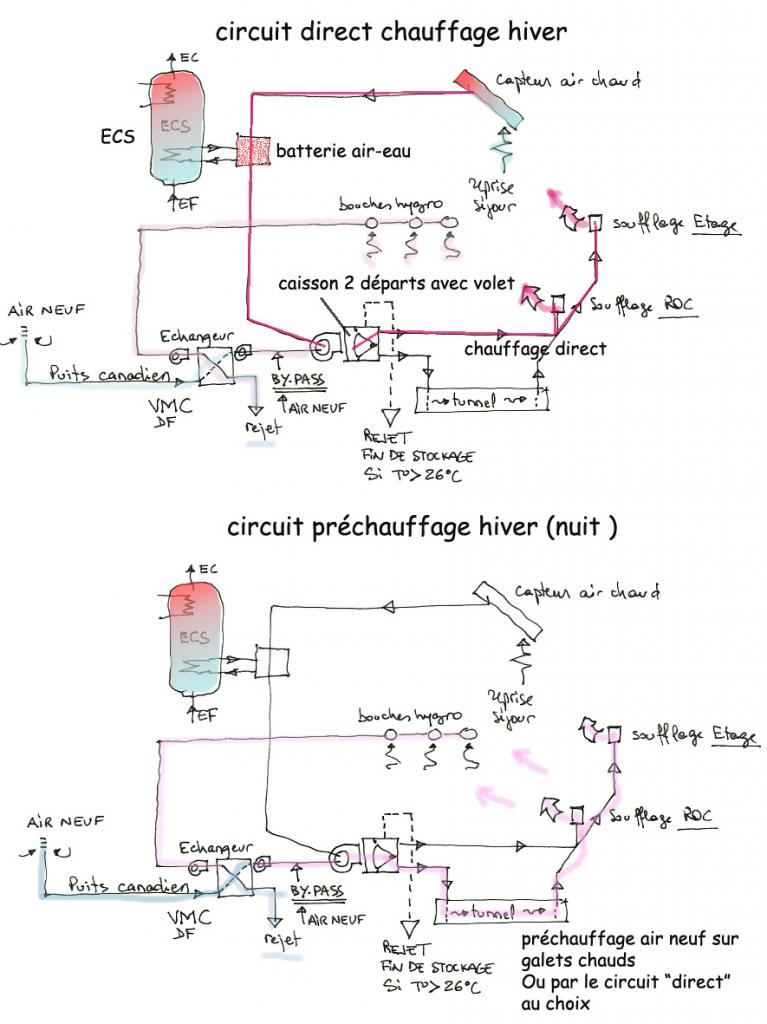 circuit direct chauffage hiver
EC
capteur air chaud
ECS
ECS
batterie air-eau
EF
reprise
séjour
bouches hygro
soufflage Etage
caisson 2 départs avec volet
AIR NEUF
Soufflage RDC
Echangeur
chauffage direct
Puits canadien
BY-PASS
tunnel
VMC
DF
AIR NEUF
rejet
REJET
FIN DE STOCKAGE
Si T° > 26°C
circuit préchauffage hiver (nuit )
EC
capteur air chaud
ECS
EF
reprise
séjour
bouches hygro
soufflage Etage
AIR NEUF
Soufflage RDC
Echangeur
Puits canadien
BY-PASS
tunnel
VMC
DF
AIR NEUF
rejet
REJET
FIN DE STOCKAGE
Si T° > 26°C
préchauffage air neuf sur
galets chauds
Ou par le circuit “direct”
au choix